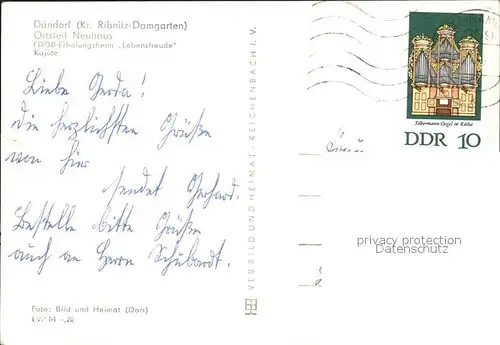 Dändorf (Kr. Ribnitz-Damgarten)
Ortsteil Neuhaus
FDGB-Erholungsheim „Lebensfreude"
Kajüte
Liebe Gerda!
die herzlichsten Grüße
von hier
sendet Gerhard.
Bestelle bitte Grüße
auch an Herrn Schubardt.
Foto: Bild und Heimat (Darr)
EVP M -,20
VERBILD UND HEIMAT · REICHENBACH I. V.
Silbermann-Orgel in Rötha
DDR 10
privacy protection
Datenschutz